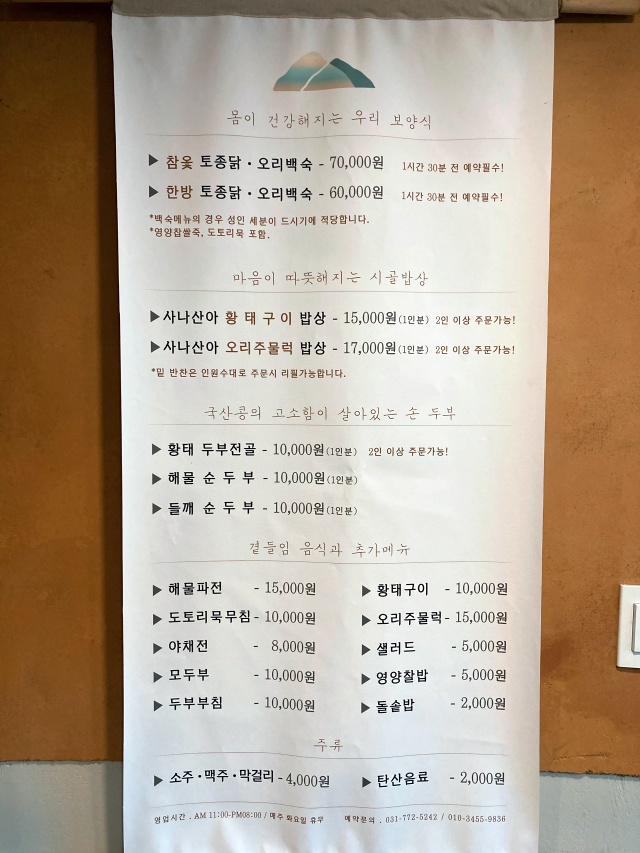 몸이 건강해지는 우리 보양식
▶ 참옻 토종닭 · 오리백숙 - 70,000원 1시간 30분 전 예약필수!
▶ 한방 토종닭 · 오리백숙 - 60,000원 1시간 30분 전 예약필수!
*백숙메뉴의 경우 성인 세분이 드시기에 적당합니다.
*영양찹쌀죽, 도토리묵 포함.
마음이 따뜻해지는 시골밥상
▶사나산아 황태구이 밥상 - 15,000원(1인분) 2인 이상 주문가능!
▶사나산아 오리주물럭 밥상 - 17,000원(1인분) 2인 이상 주문가능!
*밑 반찬은 인원수대로 주문시 리필가능합니다.
국산콩의 고소함이 살아있는 손 두부
▶ 황태 두부전골 - 10,000원(1인분) 2인 이상 주문가능!
▶ 해물 순 두 부 - 10,000원(1인분)
▶ 들깨 순 두 부 - 10,000원(1인분)
곁들임 음식과 추가메뉴
▶ 해물파전 - 15,000원 ▶ 황태구이 - 10,000원
▶ 도토리묵무침 - 10,000원 ▶ 오리주물럭 - 15,000원
▶ 야채전 - 8,000원 ▶ 샐러드 - 5,000원
▶ 모두부 - 10,000원 ▶ 영양찰밥 - 5,000원
▶ 두부부침 - 10,000원 ▶ 돌솥밥 - 2,000원
주류
▶ 소주 · 맥주 · 막걸리 - 4,000원 ▶ 탄산음료 - 2,000원
영업시간 . AM 11:00-PM08:00 / 매주 화요일 휴무 예약문의 . 031-772-5242 / 010-3455-9836